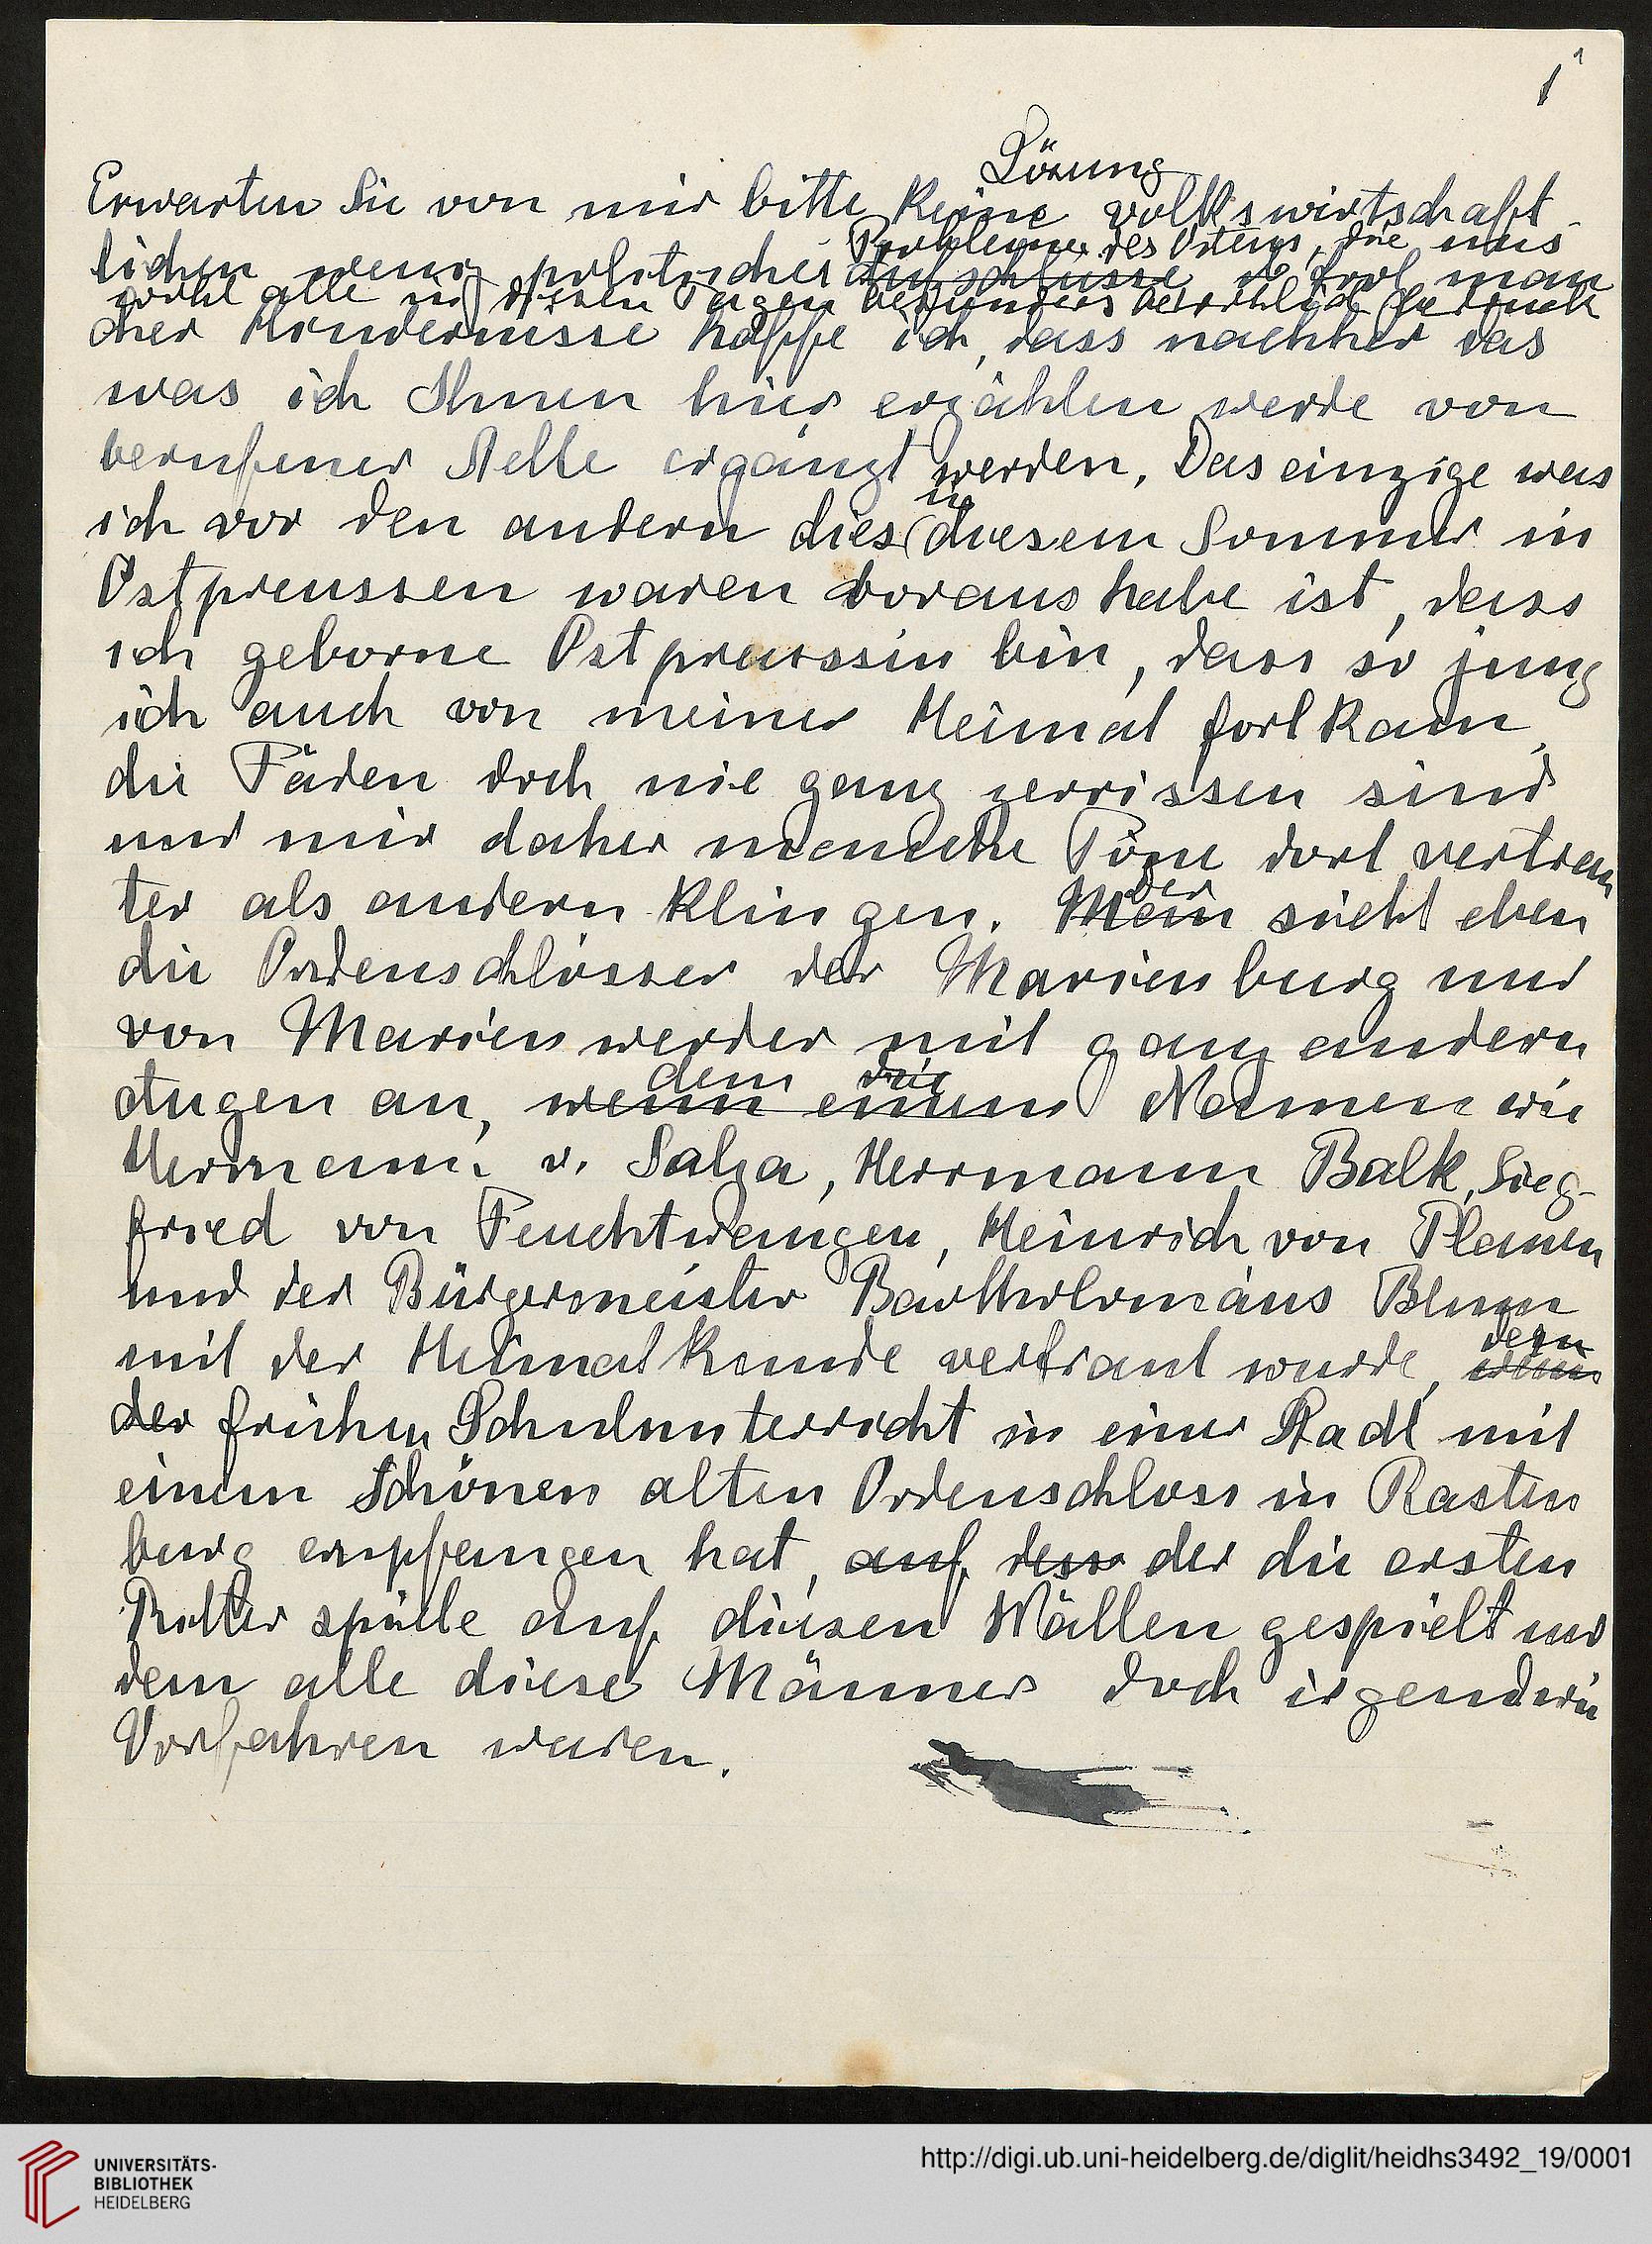 1
Lösung
Erwarten Sie von mir bitte keine volkswirtschaft
Probleme des Ostens, die uns
lichen wenig politischer Aufschlüsse trotz man
wohl alle in diesen Tagen besonders
cher Hindernisse hoffe ich, dass nachher das
was ich Ihnen hier erzählen werde von
berufener Stelle ergänzt werden. Das einzige was
in
ich vor den andern dies (diesem Sommer in
Ostpreussen waren voraus habe ist, dass
ich geborne Ostpreussin bin, dass so jung
ich auch von meiner Heimat fortkam,
die Fäden doch nie ganz zerrissen sind
und mir daher manche Töne dort vertrau
ter als andern klingen. Mein sieht eben
Der
die Ordenschlösser der Marienburg und
von Marienwerder mit ganz andern
dem die
Augen an, wenn einem Namen wie
Hermann v. Salza, Herrmann Balk, Sieg-
fried von Feuchtwangen, Heinrich von Plauen
und der Bürgermeister Bartholomäus Blum
mit der Heimatkunde vertraut wurde, wenn
dem
der frühen Schulunterricht in einer Stadt mit
einem schönen alten Ordenschloss in Rasten
burg empfangen hat, auf der die ersten
Ritterspiele auf diesen Wällen gespielt und
dem alle diese Männer doch irgendwie
Vorfahren waren.
UNIVERSITÄTS-
BIBLIOTHEK
HEIDELBERG
http://digi.ub.uni-heidelberg.de/diglit/heidhs3492_19/0001